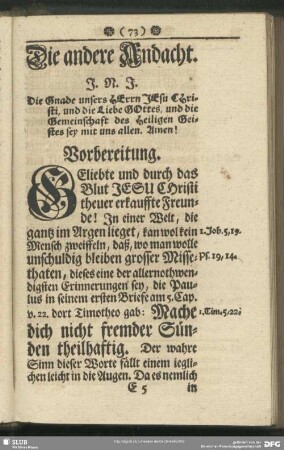 (73)
Die andere Andacht.
J. N. J.
Die Gnade unsers HErrn JEsu CHri-
sti, und die Liebe GOttes, und die
Gemeinschaft des Heiligen Gei-
stes sey mit uns allen. Amen!
Vorbereitung.
GEliebte und durch das
Blut JESU CHristi
theuer erkauffte Freun-
de! In einer Welt, die
gantz im Argen lieget, kan wol kein 1. Joh. 5, 19.
Mensch zweiffeln, daß, wo man wolle
unschuldig bleiben grosser Misse- Ps. 19, 14.
thaten, dieses eine der allernothwen-
digsten Erinnerungen sey, die Pau-
lus in seinem ersten Briefe am 5. Cap.
v. 22. dort Timotheo gab: Mache 1. Tim. 5, 22.
dich nicht fremder Sün-
den theilhaftig. Der wahre
Sinn dieser Worte fällt einem iegli-
chen leicht in die Augen. Da es nemlich
E 5 in
SLUB
DFG